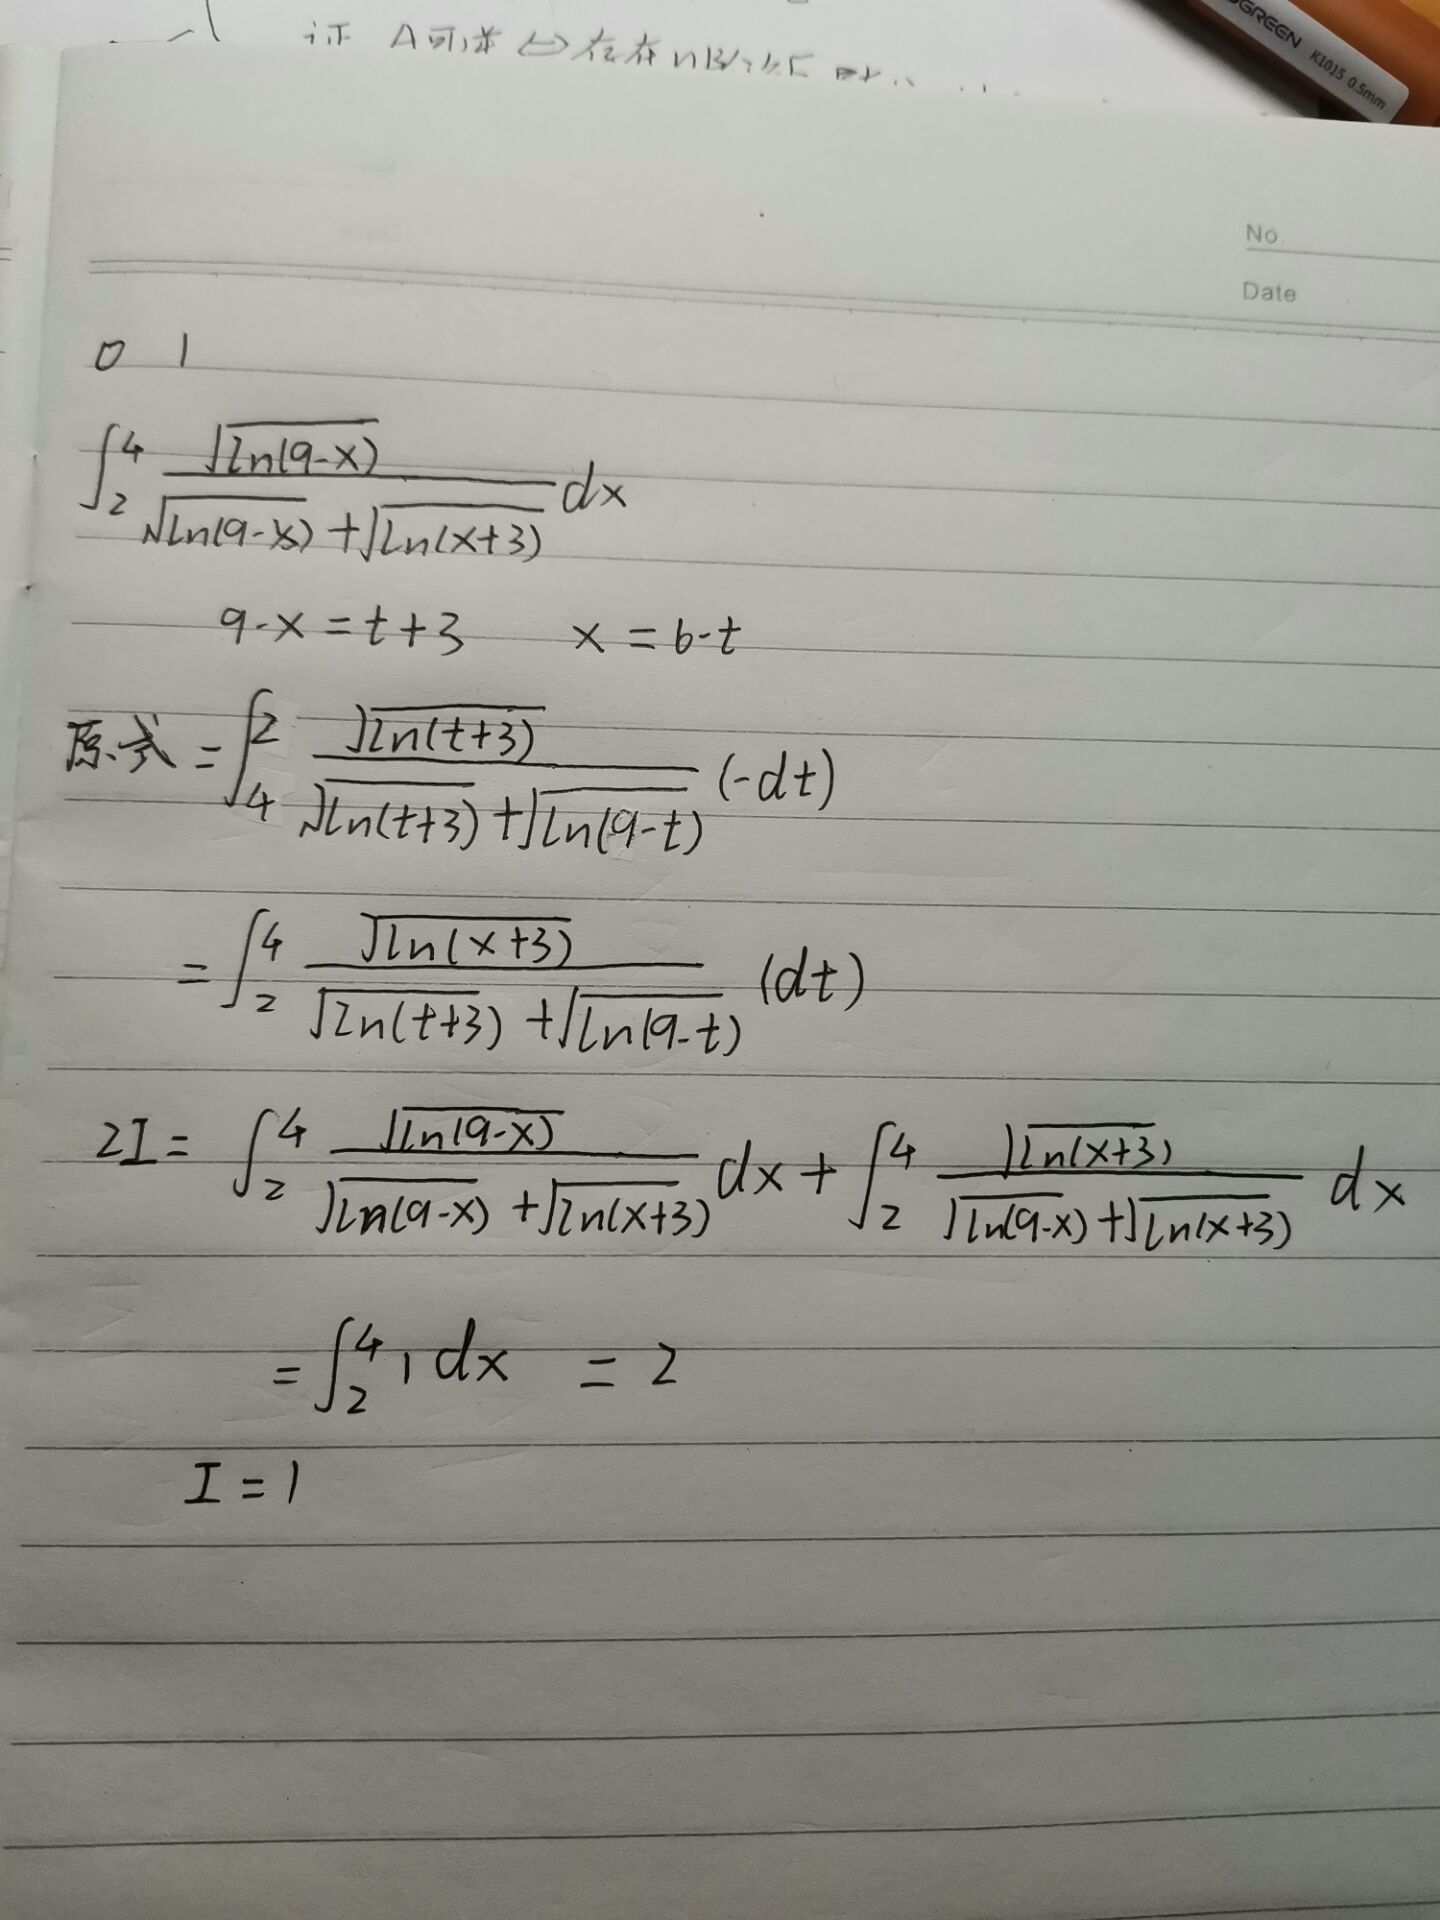 证 A可逆 ⇔ 存在n
GREEN K1015 0.5mm
No.
Date
0 1
∫₂⁴ √ln(9-x) / (√ln(9-x) + √ln(x+3)) dx
9-x = t+3 x = 6-t
原式 = ∫₄² √ln(t+3) / (√ln(t+3) + √ln(9-t)) (-dt)
= ∫₂⁴ √ln(x+3) / (√ln(t+3) + √ln(9-t)) (dt)
2I = ∫₂⁴ √ln(9-x) / (√ln(9-x) + √ln(x+3)) dx + ∫₂⁴ √ln(x+3) / (√ln(9-x) + √ln(x+3)) dx
= ∫₂⁴ 1 dx = 2
I = 1